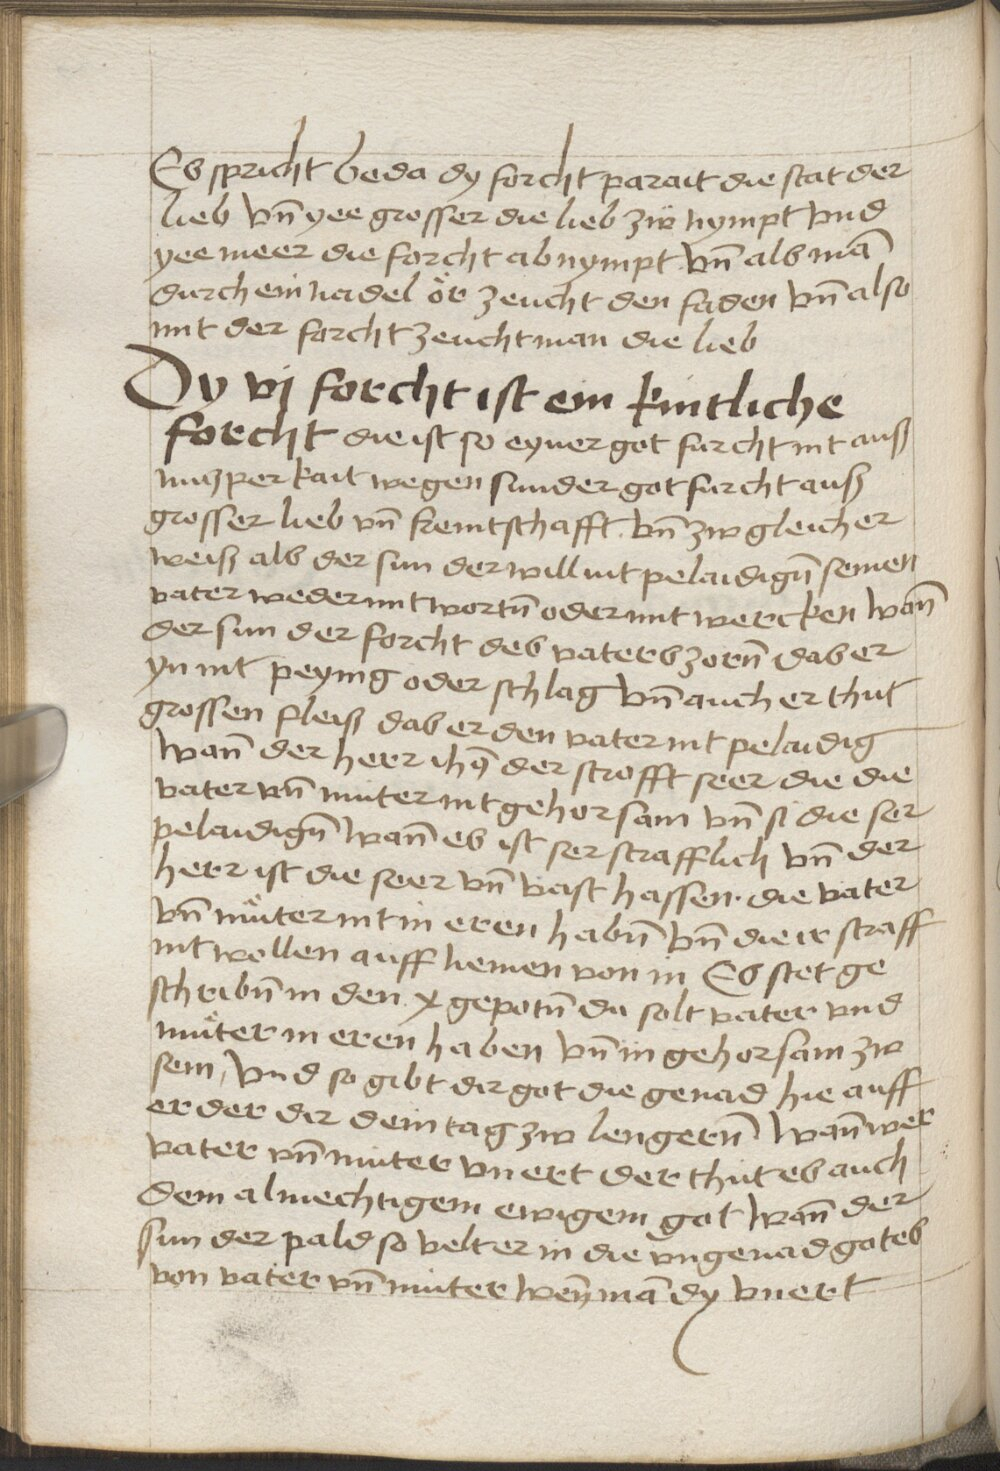 Es spricht beda dy forcht parait die stat der
lieb vn̄ yee grosser die lieb zw̆ nympt vnd
yee meer die forcht ab nympt. vn̄ als mā
durch ein nadel ör zeucht den faden vn̄ also
mit der forcht zeucht man die lieb
Dy vj forcht ist ein kintliche
forcht die ist so eyner got furcht nit auß
nuczperkait wegen sunder got furcht auß
grosser lieb vn̄ freintschafft. vn̄ zw gleicher
weiß als der sun der will nit pelaidign̄ seinen
vater weder mit wortn̄ oder mit wercken wan̄
der sun der forcht des vaters zorn̄ das er
yn nit peynig oder schlag vn̄ auch er thut
grossen fleiß das er den vater nit pelaidig
wan̄ der herr ihs̄ der strofft seer die die
vater vn̄ muter nit gehorsam vn̄ si die ser
pelaidign̄ wan̄ es ist ser strafflich vn̄ der
herr ist die seer vn̄ vast hassen. die vater
vn̄ můter nit in eren habn̄ vn̄ die ir straff
nit wollen auff nemen von in Es stet ge
schribn̄ in den. x gepotn̄ du solt vater vnd
můter in eren haben vn̄ in gehorsam zw
sein, vnd so gibt dir got die genad hie auff
erder dir dein tag zw lengern̄ wan̄ wer
vater vn̄ muter vnert der thut es auch
dem almechtigem ewigem got wan̄ der
sun der pald so velt er in die vngenad gotes
von vater vn̄ muter wen̄ mā dy vnert